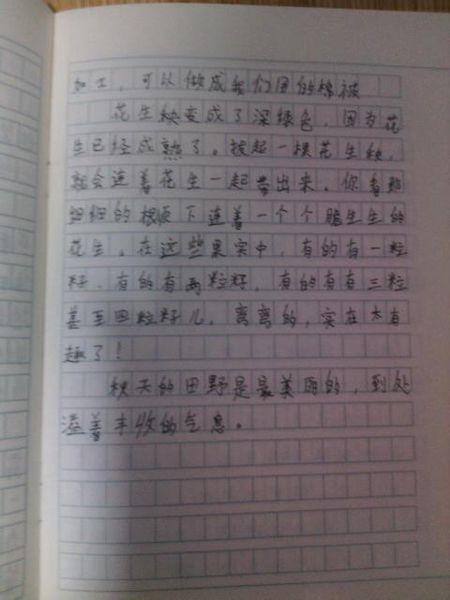 加工,可以做成我们用的棉被
花生秧变成了深绿色,因为花
生已经成熟了。拔起一棵花生秧,
就会连着花生一起带出来。你看那
细细的根须下连着一个个脆生生的
花生。在这些果实中,有的有一粒
籽,有的有两粒籽,有的有有三粒
甚至四粒籽儿,离离的,实在太有
趣了!
秋天的田野是最美丽的,到处
溢着丰收的气息。